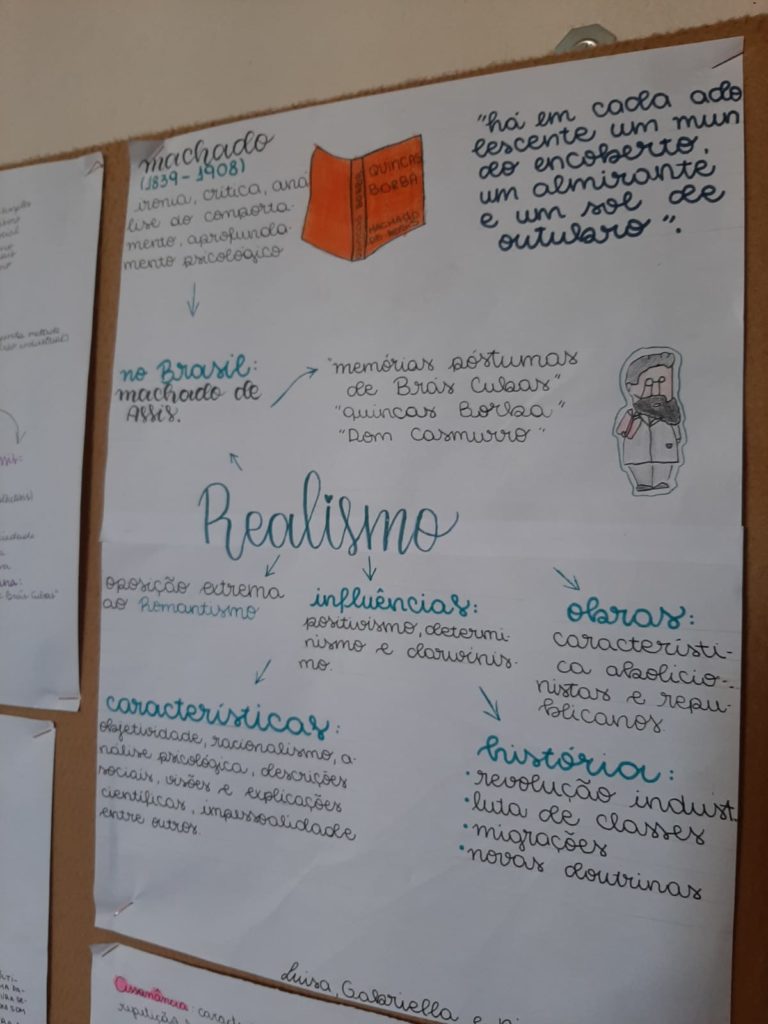 machado
(1839-1908)
ironia, crítica, aná
lise do comporta-
mento, aprofunda-
mento psicológico
QUINCAS
BORBA
MACHADO
DE ASSIS
QUINCAS BORBA
"há em cada ado
lescente um mun
do encoberto,
um almirante
e um sol de
outubro".
no Brasil:
machado de
Assis.
"memórias póstumas
de Brás Cubas"
"quincas Borba"
"Dom Casmurro"
Realismo
oposição extrema
ao Romantismo
influências:
positivismo, determi-
nismo e darwinis-
mo.
obras:
característi-
ca abolicio-
nistas e repu-
blicanos.
características:
objetividade, racionalismo, a-
nálise psicológica, descrições
sociais, visões e explicações
científicas, impessoalidade
entre outros.
história:
• revolução indust.
• luta de classes
• migrações
• novas doutrinas
Luisa, Gabriella e
Assonância:
repetição
Brás Cubas"